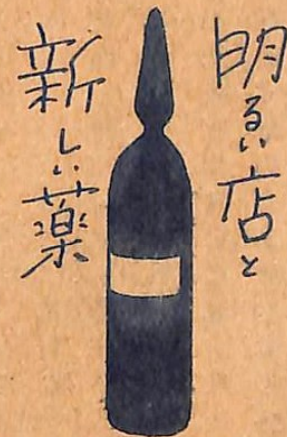 明るい店と
新しい薬